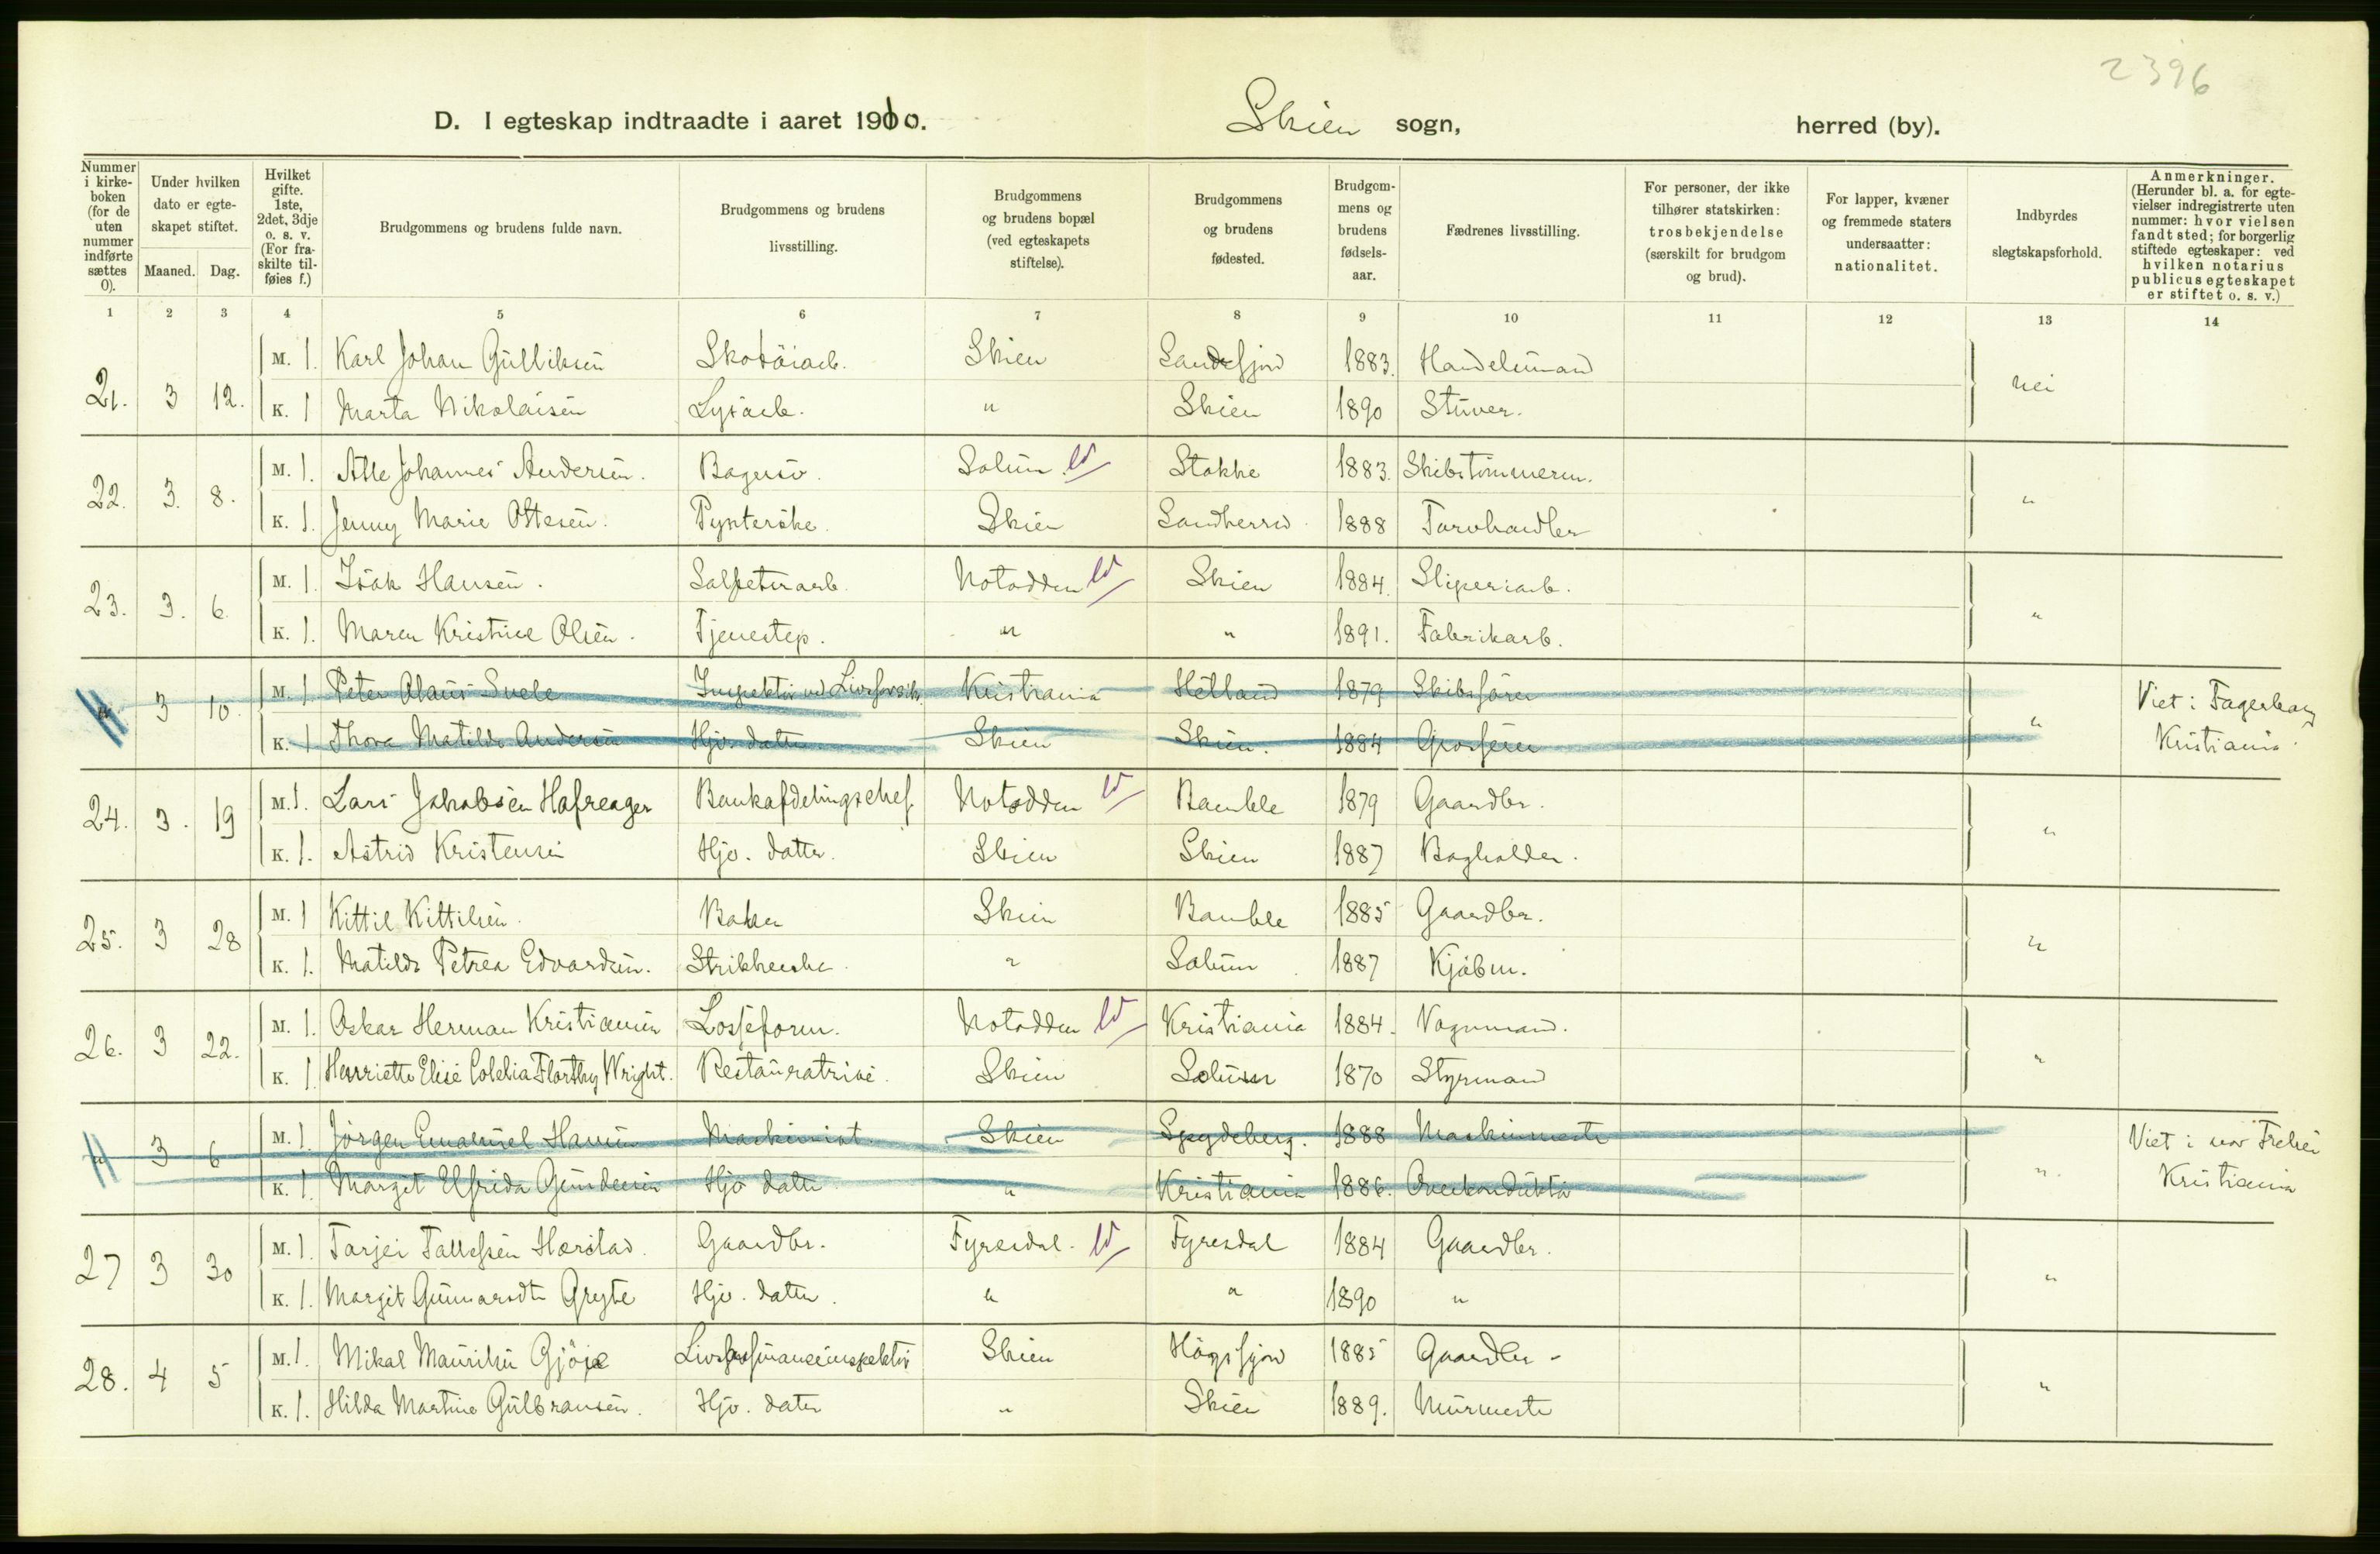 2396
D. I egteskap indtraadte i aaret 1910. Skien sogn, herred (by).
Nummer i kirkeboken (for de uten nummer indførte sættes 0). Under hvilken dato er egteskapet stiftet. Maaned. Dag. Hvilket gifte. 1ste, 2det, 3dje o. s. v. (For fraskilte tilføies f.) Brudgommens og brudens fulde navn. Brudgommens og brudens livsstilling. Brudgommens og brudens bopæl (ved egteskapets stiftelse). Brudgommens og brudens fødested. Brudgommens og brudens fødselsaar. Fædrenes livsstilling. For personer, der ikke tilhører statskirken: trosbekjendelse (særskilt for brudgom og brud). For lapper, kvæner og fremmede staters undersaatter: nationalitet. Indbyrdes slegtskapsforhold. Anmerkninger. (Herunder bl. a. for egtevielser indregistrerte uten nummer: hvor vielsen fandt sted; for borgerlig stiftede egteskaper: ved hvilken notarius publicus egteskapet er stiftet o. s. v.)
1 2 3 4 5 6 7 8 9 10 11 12 13 14
21. 3 12. M. 1. Karl Johan Gulliksen Skotöiarb. Skien Sandefjord 1883. Handelsmand nei
K. 1 Marta Nikolaisen Lysarb. " Skien 1890 Stuver.
22. 3. 8. M. 1. Atle Johannes Andersen. Bagersv. Solum Stokke 1883. Skibstömmerm. "
K. 1. Jenny Marie Ottesen. Pynterske. Skien Sandherred 1888 Torvhandler
23. 3. 6. M. 1. Isak Hansen. Salpeterarb. Notodden Skien 1884. Sliperiarb. "
K. 1. Maren Kristine Olsen. Tjenestep. " " 1891. Fabrikarb.
" 3 10. M. 1 Peter Olaus Svele Inspektör ved Livsforsik. Kristiania Hetland 1879 Skibsförer " Viet i Fagerborg
K. 1 Thora Matilde Andersen Hjv. datter Skien Skien. 1884 Grosserer Kristiania.
24. 3. 19 M. 1. Lars Jakobsen Hafreager Bankafdelingschef. Notodden Bamble 1879 Gaardbr. "
K. 1. Astrid Kristensen Hjv. datter. Skien Skien 1887 Bogholder.
25. 3 28 M. 1 Kittil Kittilsen. Baker Skien Bamble 1885 Gaardbr. "
K. 1. Matilde Petrea Edvardsen. Strikkerske. " Solum 1887 Kjöbm.
26. 3 22. M. 1. Oskar Herman Kristiansen Losseform. Notodden Kristiania 1884. Vognmand. "
K. 1 Henriette Elise Wright. Restauratrise. Skien Solum 1870 Styrmand
" 3 6 M. 1. Jörgen Emanuel Hansen Maskinist. Skien Spydeberg. 1888 Maskinmester " Viet i vor Frelser
K. 1. Margit Elfrida Gundersen Hjv datter " Kristiania 1886. Overkonduktör Kristiania
27 3 30 M. 1. Tarjei Tallefsen Hærstad. Gaardbr. Fyresdal. Fyresdal 1884 Gaardbr. "
K. 1. Margit Gunnarsdtr Gryte Hjv. datter. " " 1890 "
28. 4 5 M. 1. Mikal Mauritsen Gjöje Skien 1885 Gaardbr. "
K. 1. Hilda Martine Gulbransen. Hjv. datter " Skien 1889. Murmester